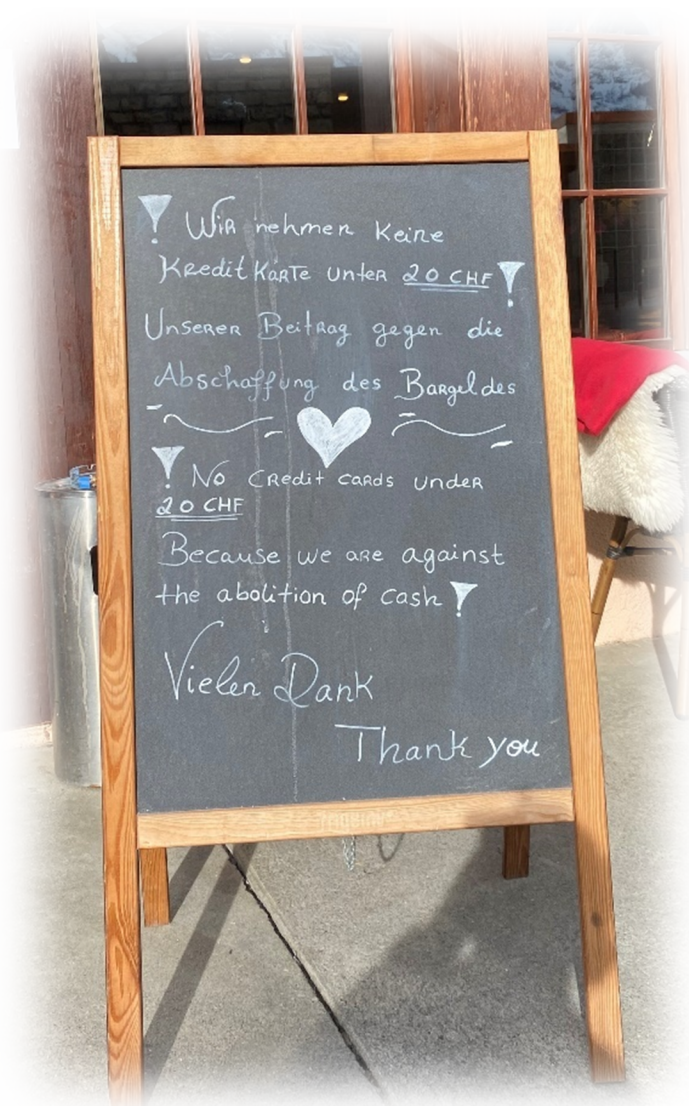 ! Wir nehmen keine
Kreditkarte unter 20 CHF !
Unserer Beitrag gegen die
Abschaffung des Bargeldes
! No credit cards under
20 CHF
Because we are against
the abolition of cash !
Vielen Dank
Thank you